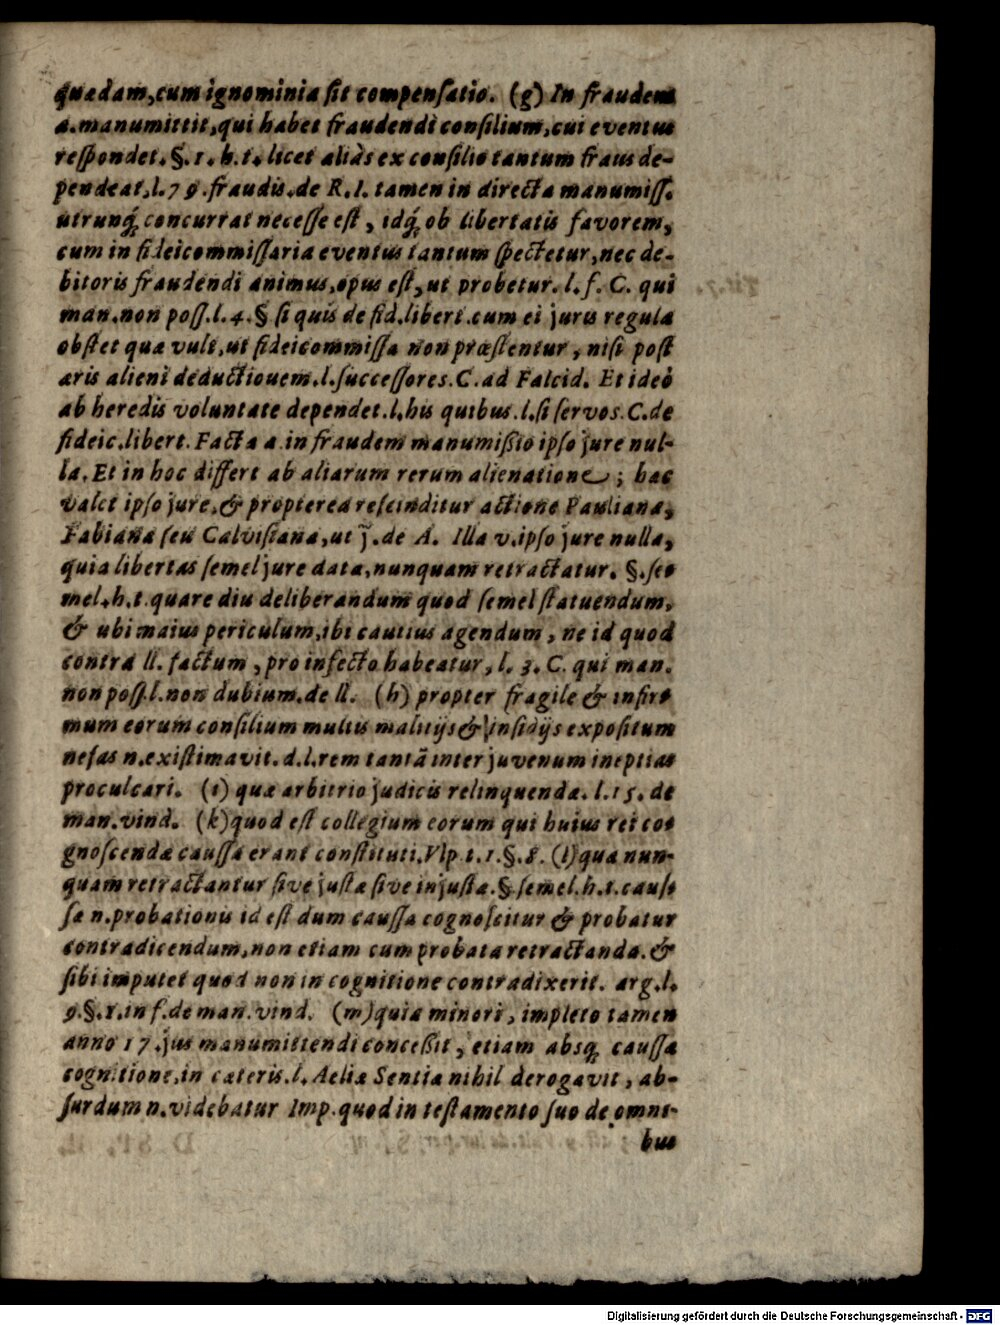 quædam, cum ignominia sit compensatio. (g) In fraudem
a. manumittit, qui habet fraudendi consilium, cui eventus
respondet. §. 1. h. t. licet aliàs ex consilio tantum fraus de-
pendeat, l. 79. fraudis. de R. I. tamen in directa manumiss.
utrunq; concurrat necesse est, idq; ob libertatis favorem,
cum in fideicommissaria eventus tantum spectetur, nec de-
bitoris fraudendi animus, opus est, ut probetur. l. f. C. qui
man. non poss. l. 4. § si quis de fid. libert. cum ei juris regula
obstet quæ vult, ut fideicommissa non præstentur, nisi post
æris alieni deductiouem. l. successores. C. ad Falcid. Et ideò
ab heredis voluntate dependet. l. his quibus. l. si servos. C. de
fideic. libert. Facta a. in fraudem manumißio ipso jure nul-
la. Et in hoc differt ab aliarum rerum alienatione; hac
valet ipso jure, & propterea rescinditur actione Pauliana,
Fabiana seu Calvisiana, ut j. de A. Illa v. ipso jure nulla,
quia libertas semel jure data, nunquam retractatur. §. se-
mel. h. t. quare diu deliberandum quod semel statuendum,
& ubi maius periculum, ibi cautius agendum, ne id quod
contra ll. factum, pro infecto habeatur, l. 3. C. qui man.
non poss. l. non dubium. de ll. (h) propter fragile & infir-
mum eorum consilium multis malitijs & insidijs expositum
nefas n. existimavit. d. l. rem tantã inter juvenum ineptias
proculcari. (i) quæ arbitrio judicis relinquenda. l. 15. de
man. vind. (k) quod est collegium eorum qui huius rei co-
gnoscendæ caussa erant constituti. Vlp. t. 1. §. 8. (l) quæ nun-
quam retractantur sive justæ sive injustæ. §. semel. h. t. caus-
sæ n. probationis id est dum caussa cognoscitur & probatur
contradicendum, non etiam cum probata retractanda. &
sibi imputet quod non in cognitione contradixerit. arg. l.
9. §. 1. in f. de man. vind. (m) quia minori, impleto tamen
anno 17. jus manumittendi conceßit, etiam absq; caussæ
cognitione, in cæteris. l. Aelia Sentia nihil derogavit, ab-
surdum n. videbatur Imp. quod in testamento suo de omni-
bus
Digitalisierung gefördert durch die Deutsche Forschungsgemeinschaft - DFG